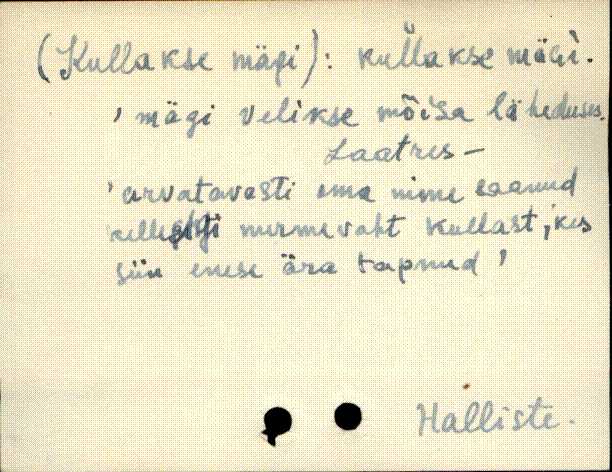 (Kullakse mägi): kullakse mägi.
' mägi Velikse mõisa läheduses.
Laatres –
' arvatavasti oma nime saanud
kellegi nurmevaht Kullast, kes
siin enese ära tapnud '
Halliste.